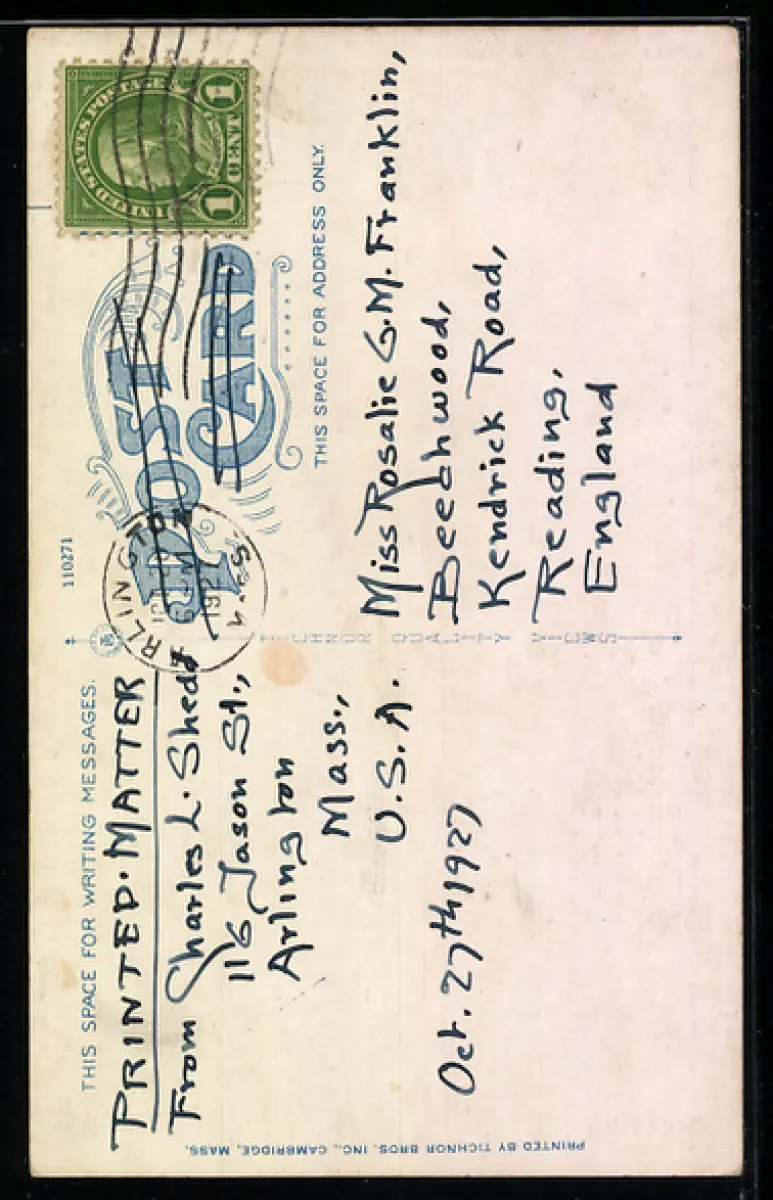 THIS SPACE FOR WRITING MESSAGES.
PRINTED·MATTER
From Charles L. Shedd
116 Jason St.,
Arlington
Mass.,
U.S.A.
Oct. 27th 1927
PRINTED BY TICHNOR BROS. INC., CAMBRIDGE, MASS.
110271
POST
CARD
THIS SPACE FOR ADDRESS ONLY.
UNITED STATES POSTAGE
1 CENT 1
ARLINGTON
MASS
TICHNOR QUALITY VIEWS
Miss Rosalie G.M. Franklin,
Beechwood,
Kendrick Road,
Reading,
England